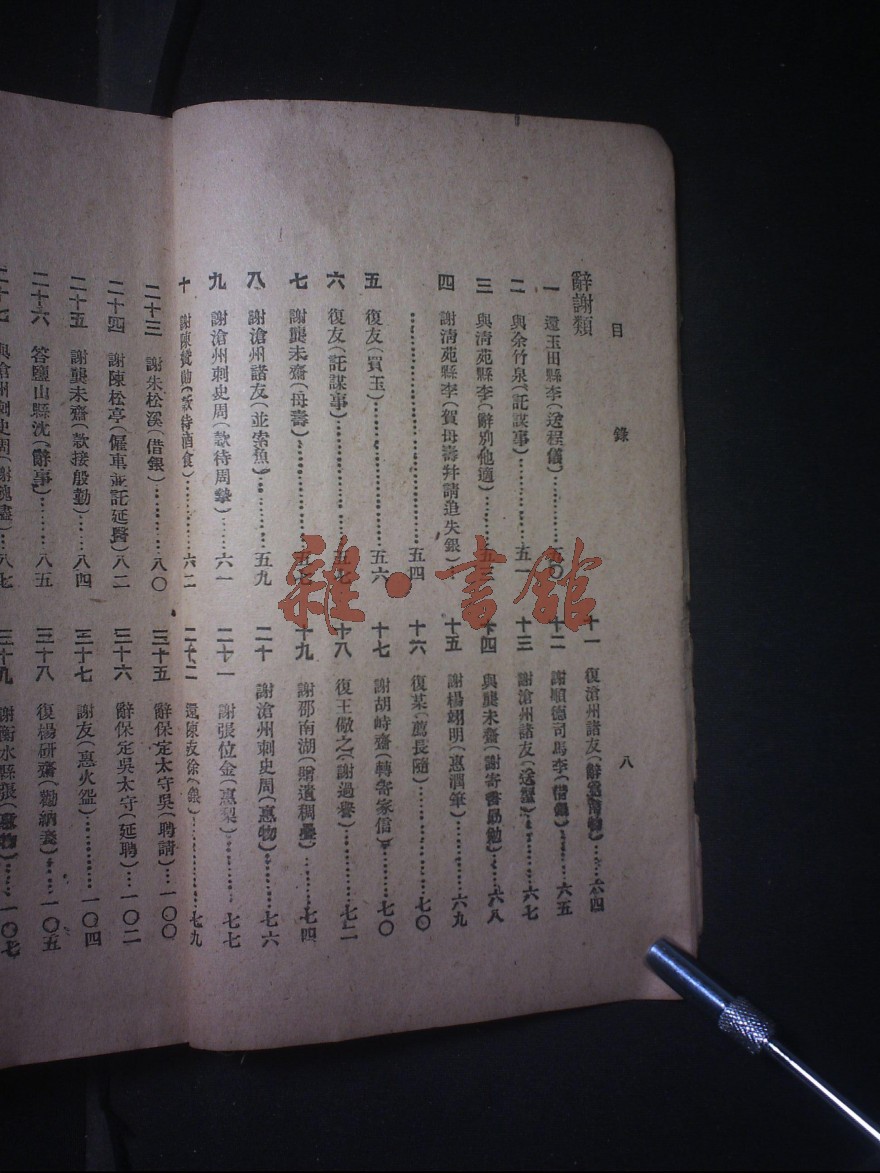 目 錄 八
辭謝類
一 還玉田縣李(送程儀)……五〇
二 與余竹泉(託謀事)……五一
三 與淸苑縣李(辭別他適)……五三
四 謝淸苑縣李(賀母壽幷請追失銀)
……五四
五 復友(買玉)……五六
六 復友(託謀事)……五七
七 謝龔未齋(母壽)……
八 謝滄州諸友(並索魚)……五九
九 謝滄州刺史周(款待周摯)……六一
十 謝陳(款待酒食)……六二
十一 復滄州諸友……六四
十二 謝順德司馬李(借銀)……六五
十三 謝滄州諸友……六七
十四 與龔未齋(謝寄書勗勉)……六八
十五 謝楊翊明(惠潤筆)……六九
十六 復某(薦長隨)……七〇
十七 謝胡峙齋(轉寄家信)……七〇
十八 復王儆之(謝過譽)……七二
十九 謝邵南湖(贈遺稠疊)……七四
二十 謝滄州刺史周(惠物)……七六
二十一 謝張位金(惠梨)……七七
二十二 還陳友徐(銀)……七九
二十三 謝朱松溪(借銀)……八〇
二十四 謝陳松亭(僱車並託延醫)八二
二十五 謝龔未齋(款接殷勤)……八四
二十六 答鹽山縣沈(辭事)……八五
二十七 與滄州刺史周……八七
三十五 辭保定太守吳(聘請)…一〇〇
三十六 辭保定吳太守(延聘)…一〇二
三十七 謝友(惠火盌)……一〇四
三十八 復楊研齋(勸納妾)……一〇五
三十九 謝衡水縣張(惠物)……一〇七
雜·書館